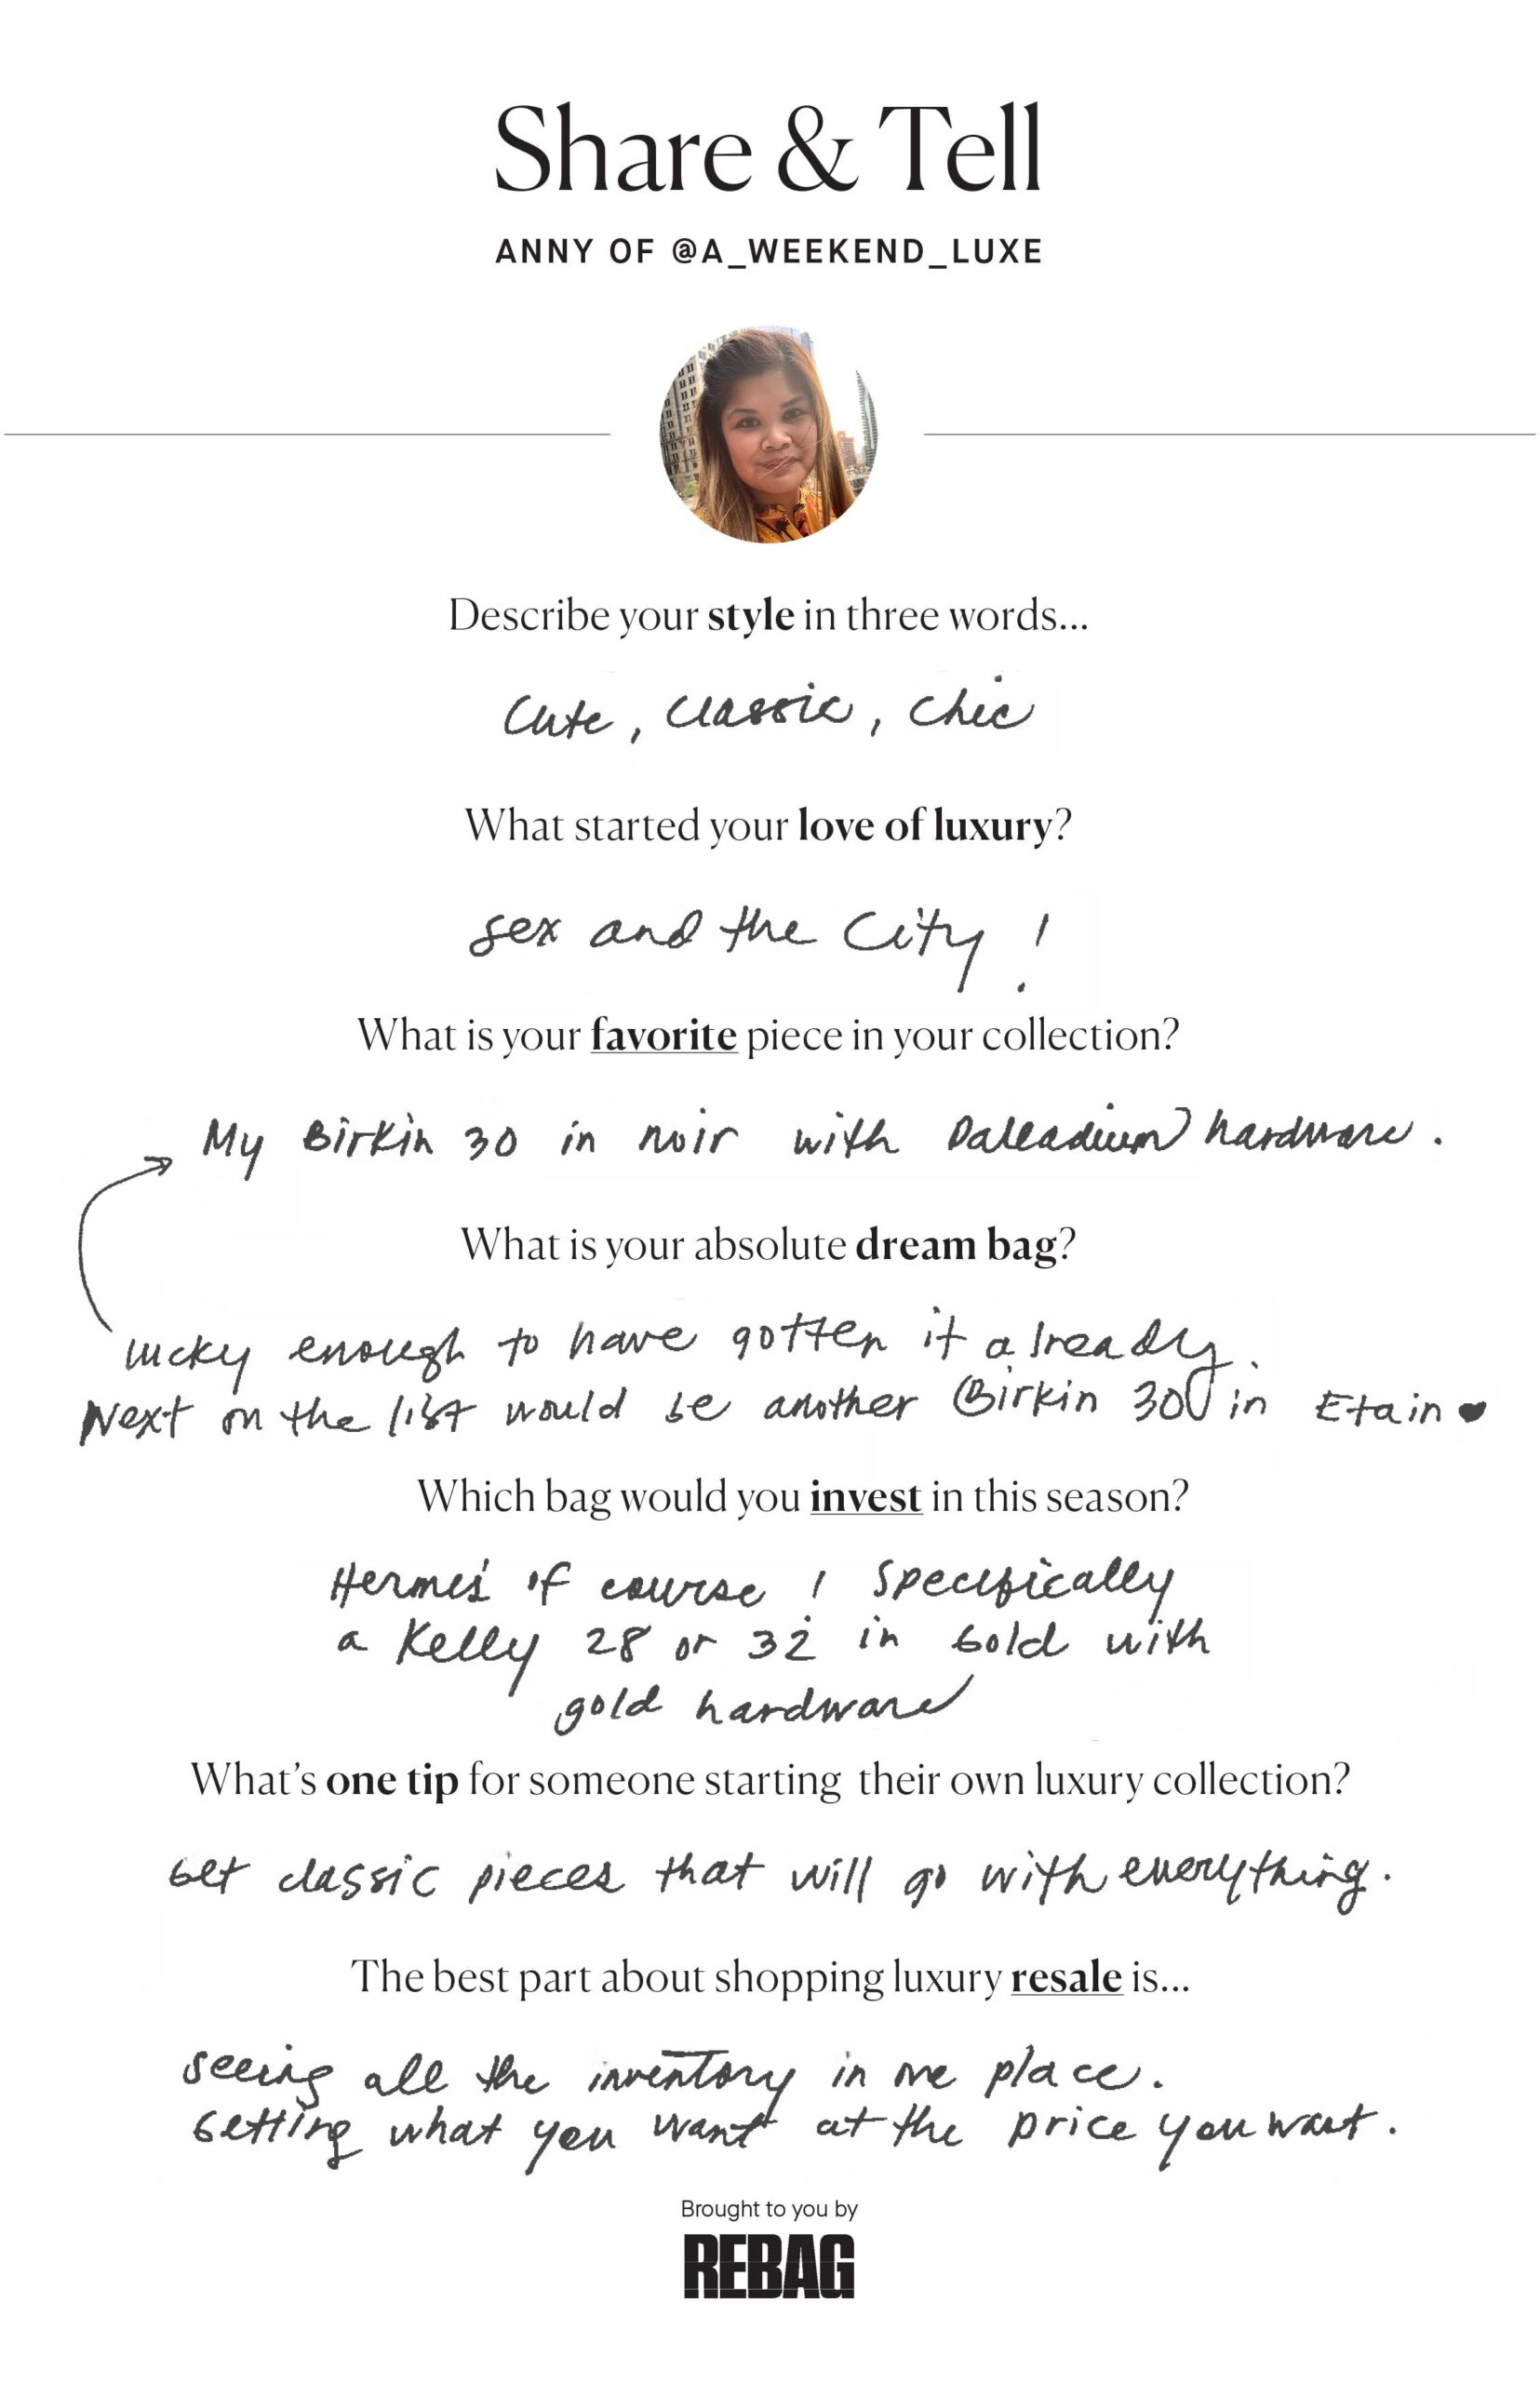 Share & Tell
ANNY OF @A_WEEKEND_LUXE
Describe your style in three words...
Cute, Classic, Chic
What started your love of luxury?
Sex and the City!
What is your favorite piece in your collection?
My Birkin 30 in noir with Palladium hardware.
What is your absolute dream bag?
Lucky enough to have gotten it already.
Next on the list would be another Birkin 30 in Etain ♥
Which bag would you invest in this season?
Hermés of course! Specifically
a Kelly 28 or 32 in Gold with
gold hardware
What's one tip for someone starting their own luxury collection?
Get classic pieces that will go with everything.
The best part about shopping luxury resale is...
Seeing all the inventory in one place.
Getting what you want at the price you want.
Brought to you by
REBAG